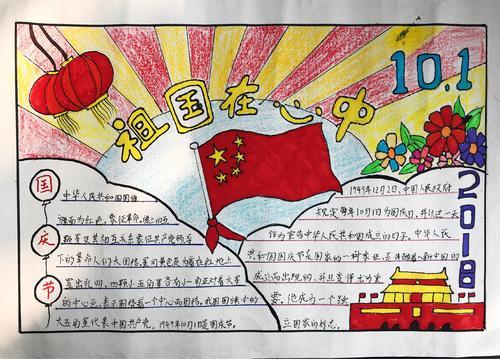 祖国在心中
10.1
2018
国庆节
中华人民共和国国旗
旗面为红色，象征革命。旗上的五
颗星及其相互关系象征共产党领导
下的革命人们大团结，星用黄色是为着在红地上
显出光明，四颗小五角星各有一角正对着大星
的中心点，表示围绕着一个中心而团结，我国国旗中的
大五角星代表中国共产党，1949年10月1日是国庆节。
1949年12月2日，中国人民政府
规定每年10月1日为国庆日，并以这一天
作为宣告中华人民共和国成立的日子。中华人民
共和国国庆节是国家的一种象征，是伴随着新中国的
成立而出现的，并且变得尤为重
要。他成为一个独
立国家的标志，